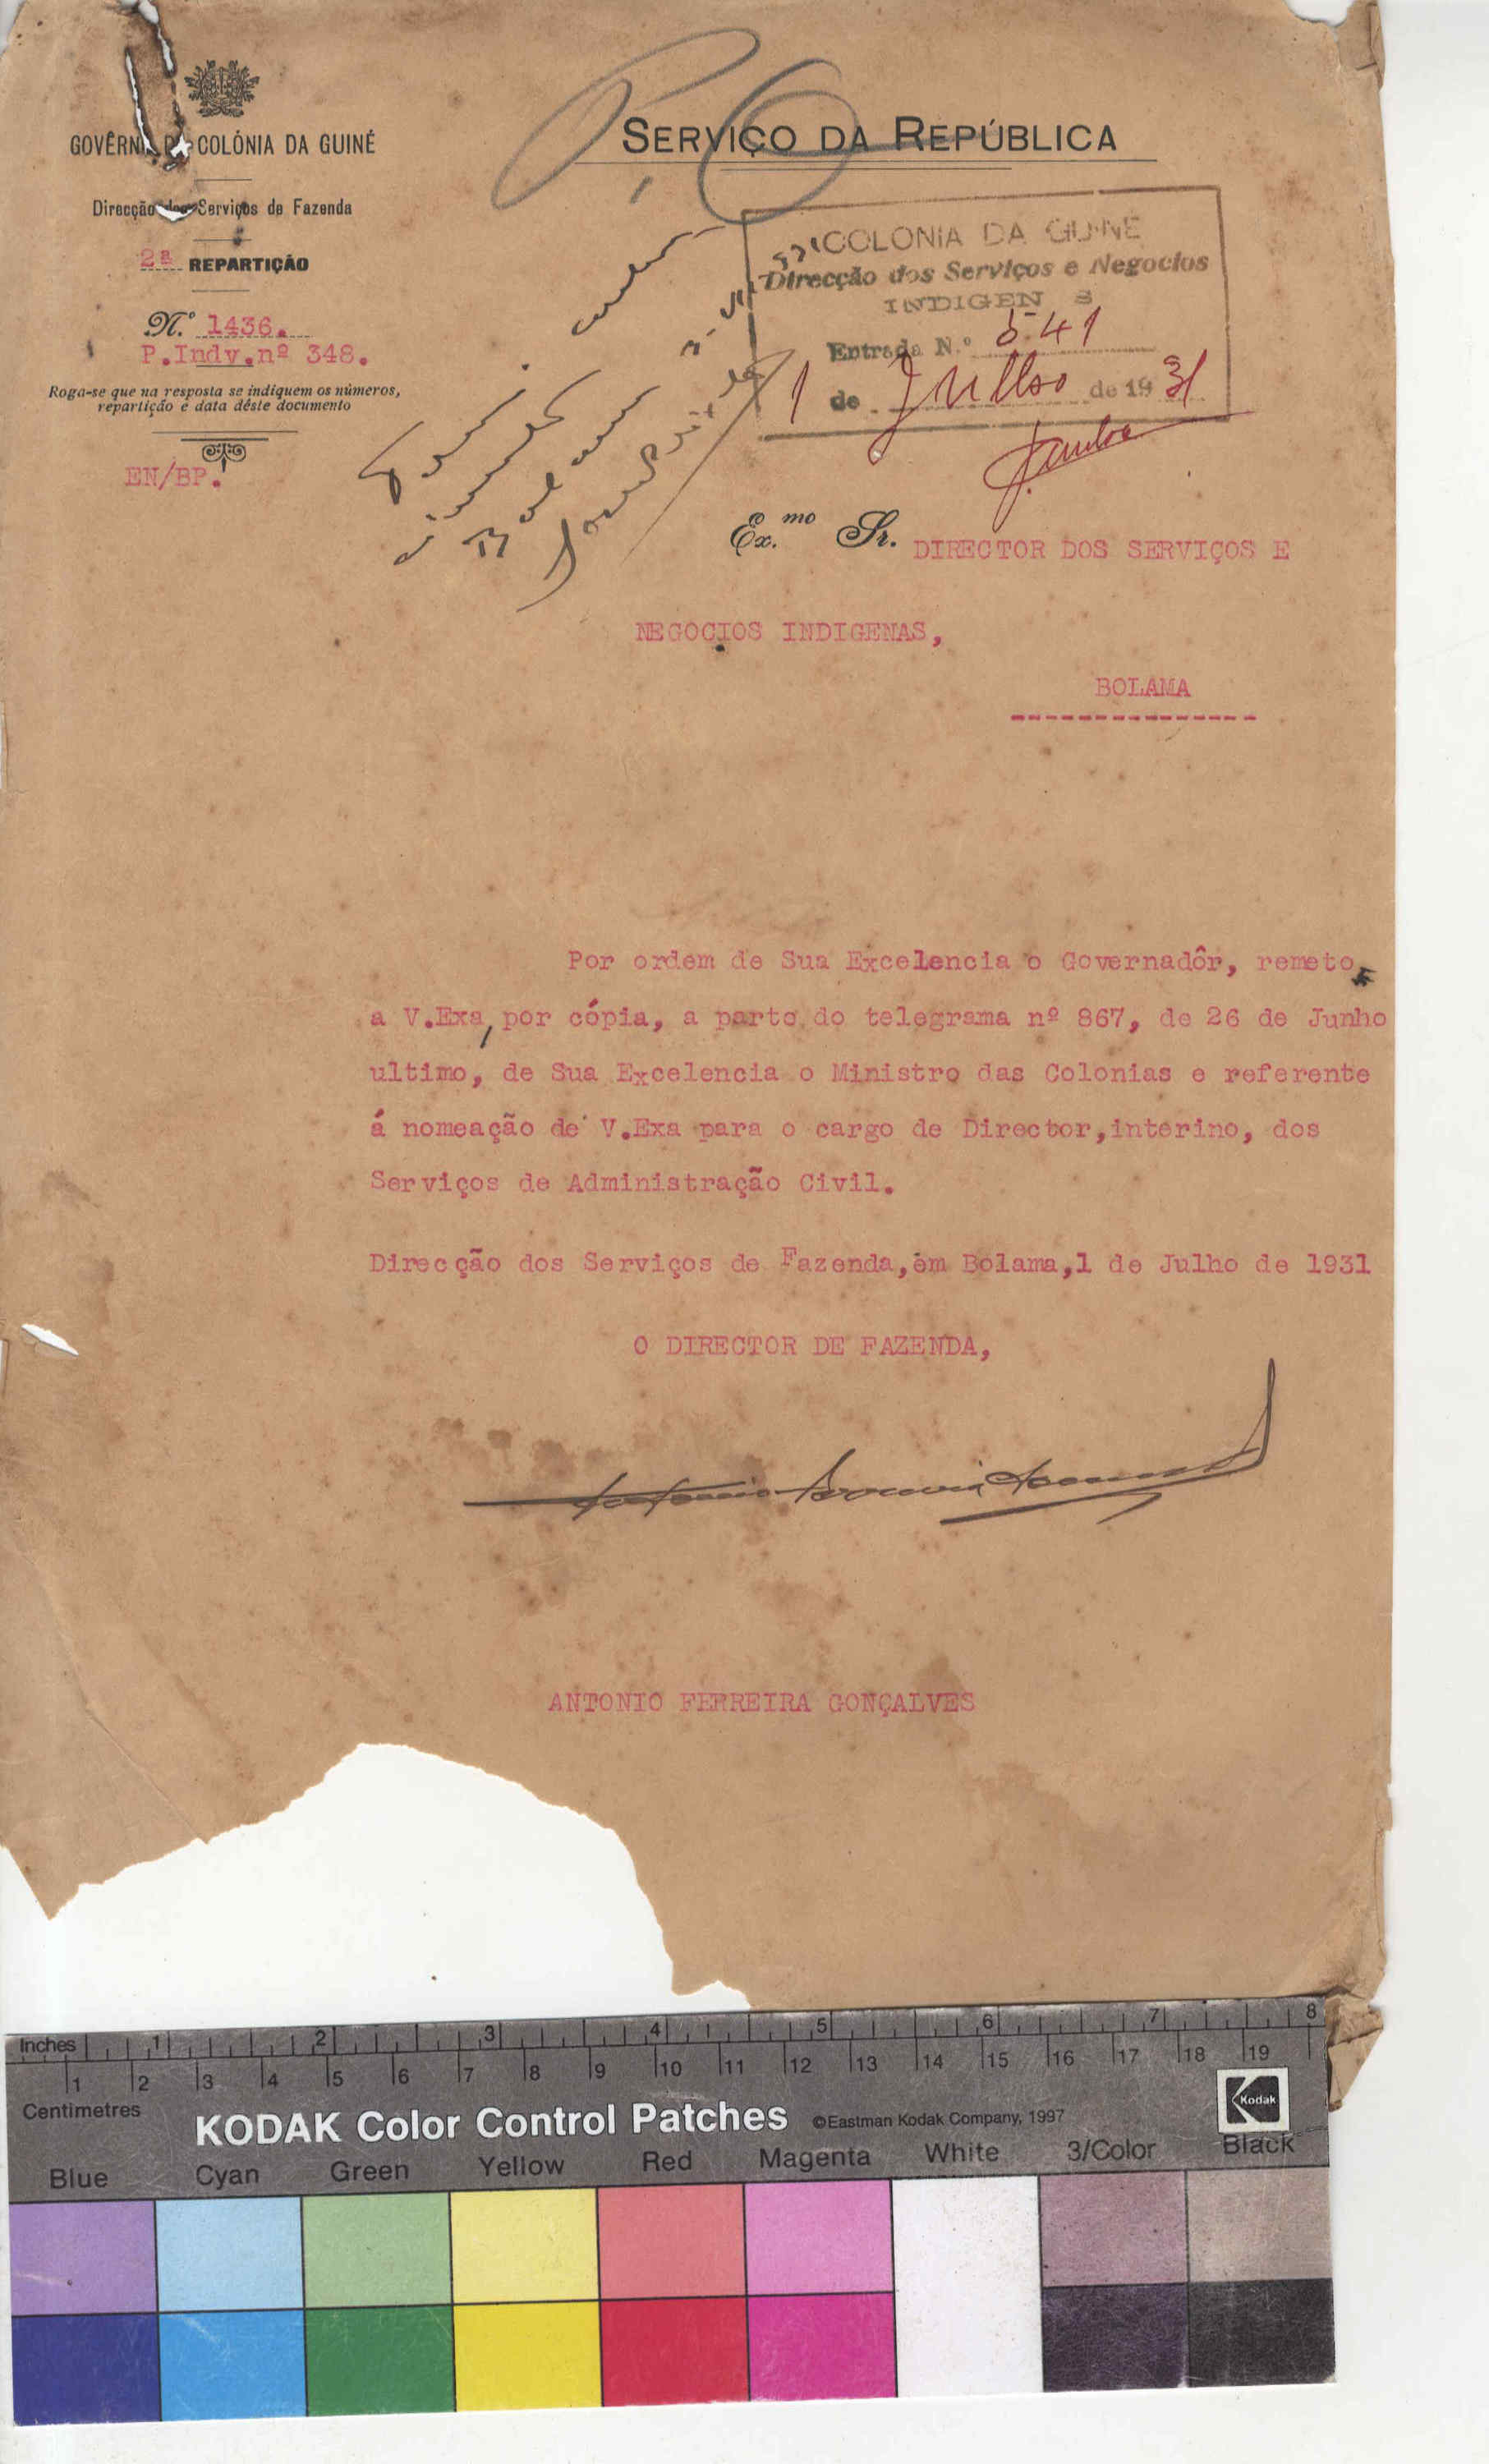 GOVÊRNO DA COLÓNIA DA GUINÉ
Direcção dos Serviços de Fazenda
2ª REPARTIÇÃO
N.º 1436.
P.Indv.nº 348.
Roga-se que na resposta se indiquem os números,
repartição e data dêste documento
EN/BP.
SERVIÇO DA REPÚBLICA
COLONIA DA GUINÉ
Direcção dos Serviços e Negocios
INDIGEN S
Entrada N.º 541
1 de Julho de 1931
Ex.mo Sr. DIRECTOR DOS SERVIÇOS E
NEGOCIOS INDIGENAS,
BOLAMA
Por ordem de Sua Excelencia o Governadôr, remeto
a V.Exa, por cópia, a parte do telegrama nº 867, de 26 de Junho
ultimo, de Sua Excelencia o Ministro das Colonias e referente
á nomeação de V.Exa para o cargo de Director,interino, dos
Serviços de Administração Civil.
Direcção dos Serviços de Fazenda,em Bolama,1 de Julho de 1931
O DIRECTOR DE FAZENDA,
ANTONIO FERREIRA GONÇALVES
Inches 1 2 3 4 5 6 7 8
1 2 3 4 5 6 7 8 9 10 11 12 13 14 15 16 17 18 19
Centimetres
KODAK Color Control Patches ©Eastman Kodak Company, 1997 Kodak
Blue Cyan Green Yellow Red Magenta White 3/Color Black